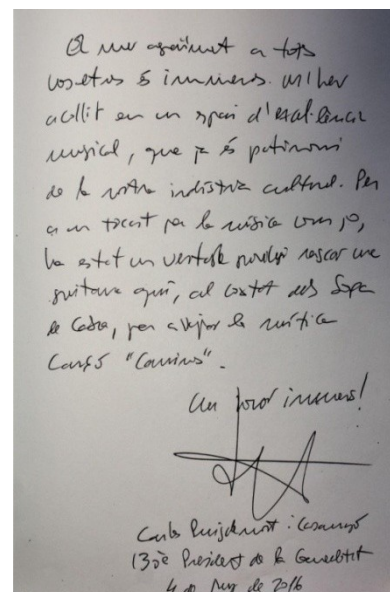 El meu agraïment a tots
vosaltres és immens. M'heu
acollit en un espai d'excel·lència
musical, que ja és patrimoni
de la nostra indústria cultural. Per
a un tocat per la música com jo,
ha estat un veritable privilegi rascar una
guitarra aquí, al costat dels Sopa
de Cabra, per a la mítica
Cançó "Camins".
Un honor immens!
Carles Puigdemont i Casamajó
130è President de la Generalitat
4 de juny de 2016